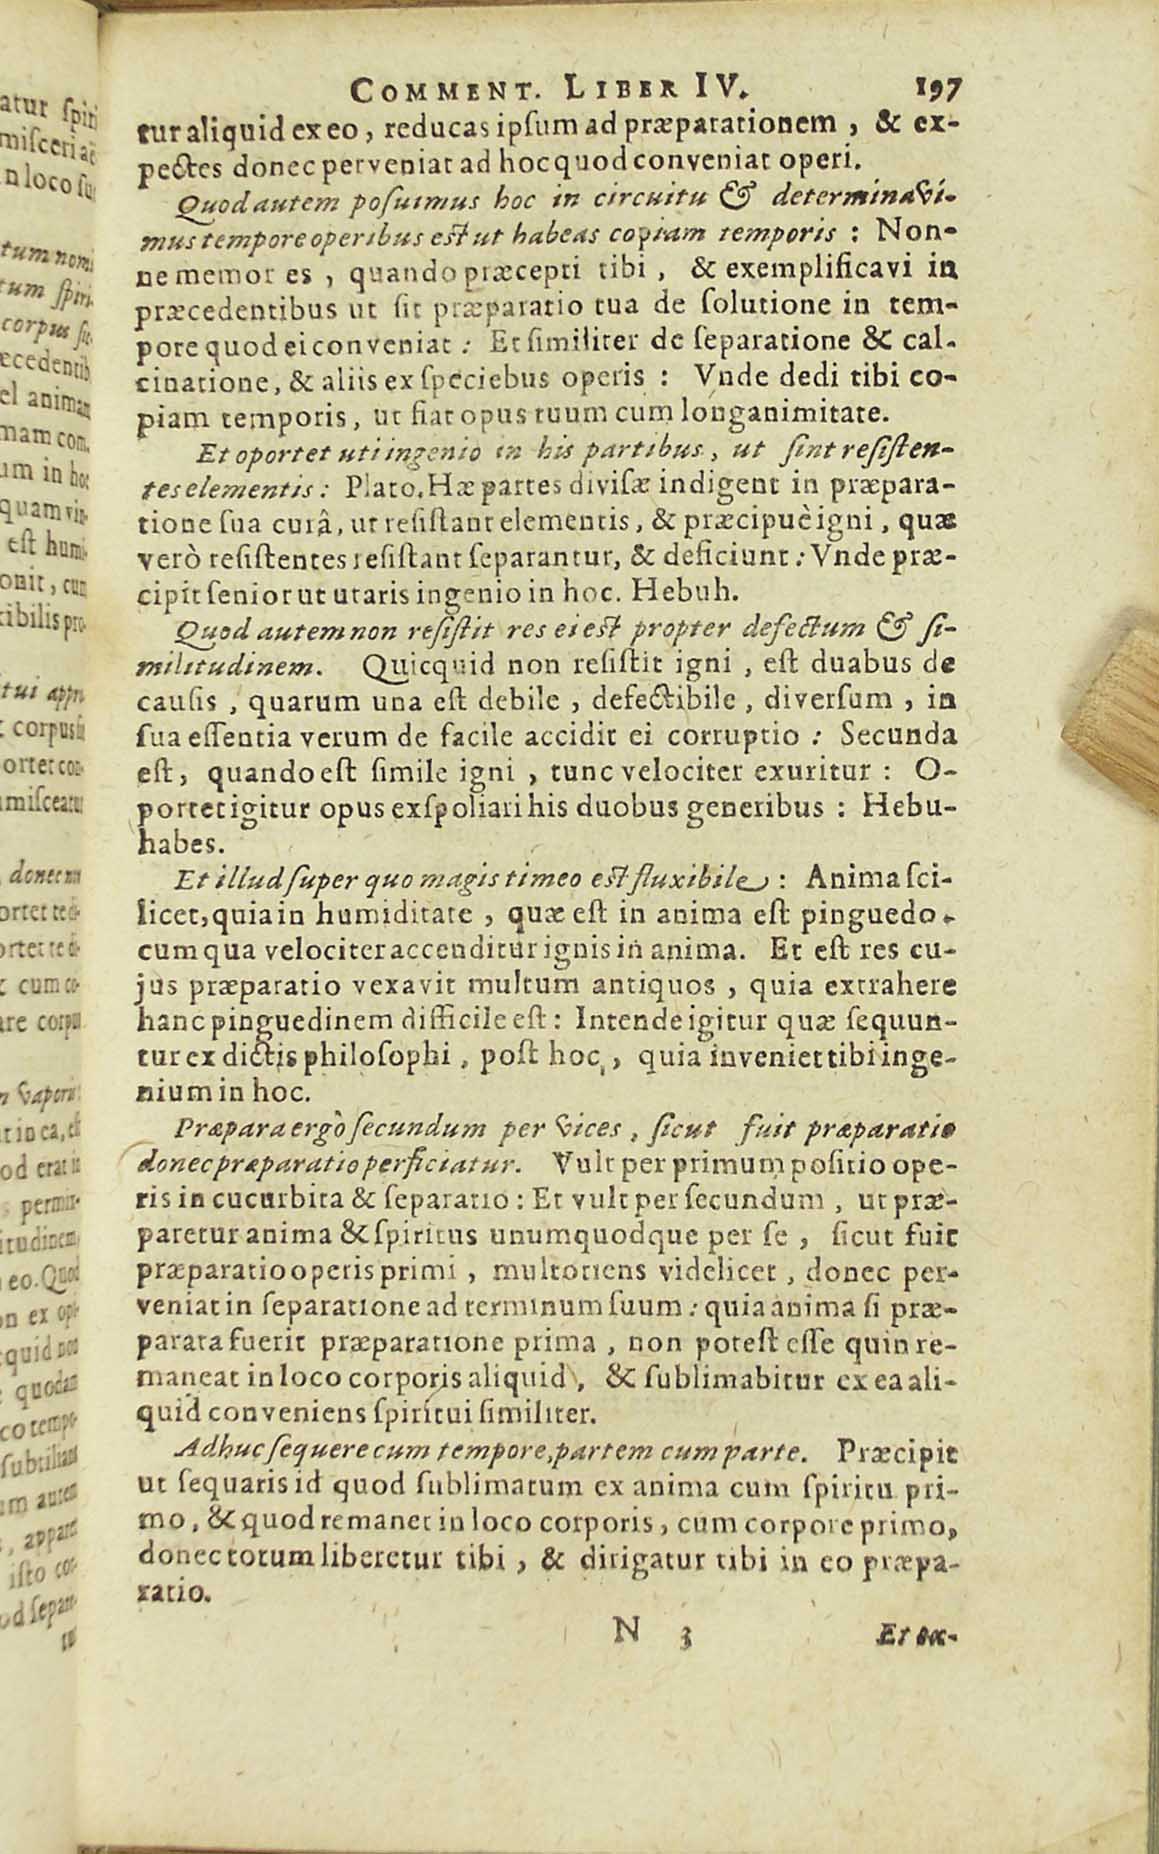 COMMENT. LIBER IV. 197
tur aliquid ex eo, reducas ipsum ad præparationem, & ex-
pectes donec perveniat ad hoc quod conveniat operi.
Quod autem posuimus hoc in circuitu & determinavi-
mus tempore operibus est ut habeas copiam temporis: Non-
ne memor es, quando præcepti tibi, & exemplificavi in
præcedentibus ut sit præparatio tua de solutione in tem-
pore quod ei conveniat: Et similiter de separatione & cal-
cinatione, & aliis ex speciebus operis: Vnde dedi tibi co-
piam temporis, ut fiat opus tuum cum longanimitate.
Et oportet uti ingenio in his partibus, ut sint resisten-
tes elementis: Plato. Hæ partes divisæ indigent in præpara-
tione sua curâ, ut resistant elementis, & præcipuè igni, quæ
verò resistentes resistant separantur, & deficiunt: Vnde præ-
cipit senior ut utaris ingenio in hoc. Hebuh.
Quod autem non resistit res ei est propter defectum & si-
militudinem. Quicquid non resistit igni, est duabus de
causis, quarum una est debile, defectibile, diversum, in
sua essentia verum de facile accidit ei corruptio: Secunda
est, quando est simile igni, tunc velociter exuritur: O-
portet igitur opus exspoliari his duobus generibus: Hebu-
habes.
Et illud super quo magis timeo est fluxibile: Anima sci-
licet, quia in humiditate, quæ est in anima est pinguedo.
cum qua velociter accenditur ignis in anima. Et est res cu-
jus præparatio vexavit multum antiquos, quia extrahere
hanc pinguedinem difficile est: Intende igitur quæ sequun-
tur ex dictis philosophi, post hoc, quia inveniet tibi inge-
nium in hoc.
Præpara ergò secundum per vices, sicut fuit præparatio
donec præparatio perficiatur. Vult per primum positio ope-
ris in cucurbita & separatio: Et vult per secundum, ut præ-
paretur anima & spiritus unumquodque per se, sicut fuit
præparatio operis primi, multotiens videlicet, donec per-
veniat in separatione ad terminum suum: quia anima si præ-
parata fuerit præparatione prima, non potest esse quin re-
maneat in loco corporis aliquid, & sublimabitur ex ea ali-
quid conveniens spiritui similiter.
Adhuc sequere cum tempore, partem cum parte. Præcipit
ut sequaris id quod sublimatum ex anima cum spiritu pri-
mo, & quod remanet in loco corporis, cum corpore primo,
donec totum liberetur tibi, & dirigatur tibi in eo præpa-
ratio.
N 3